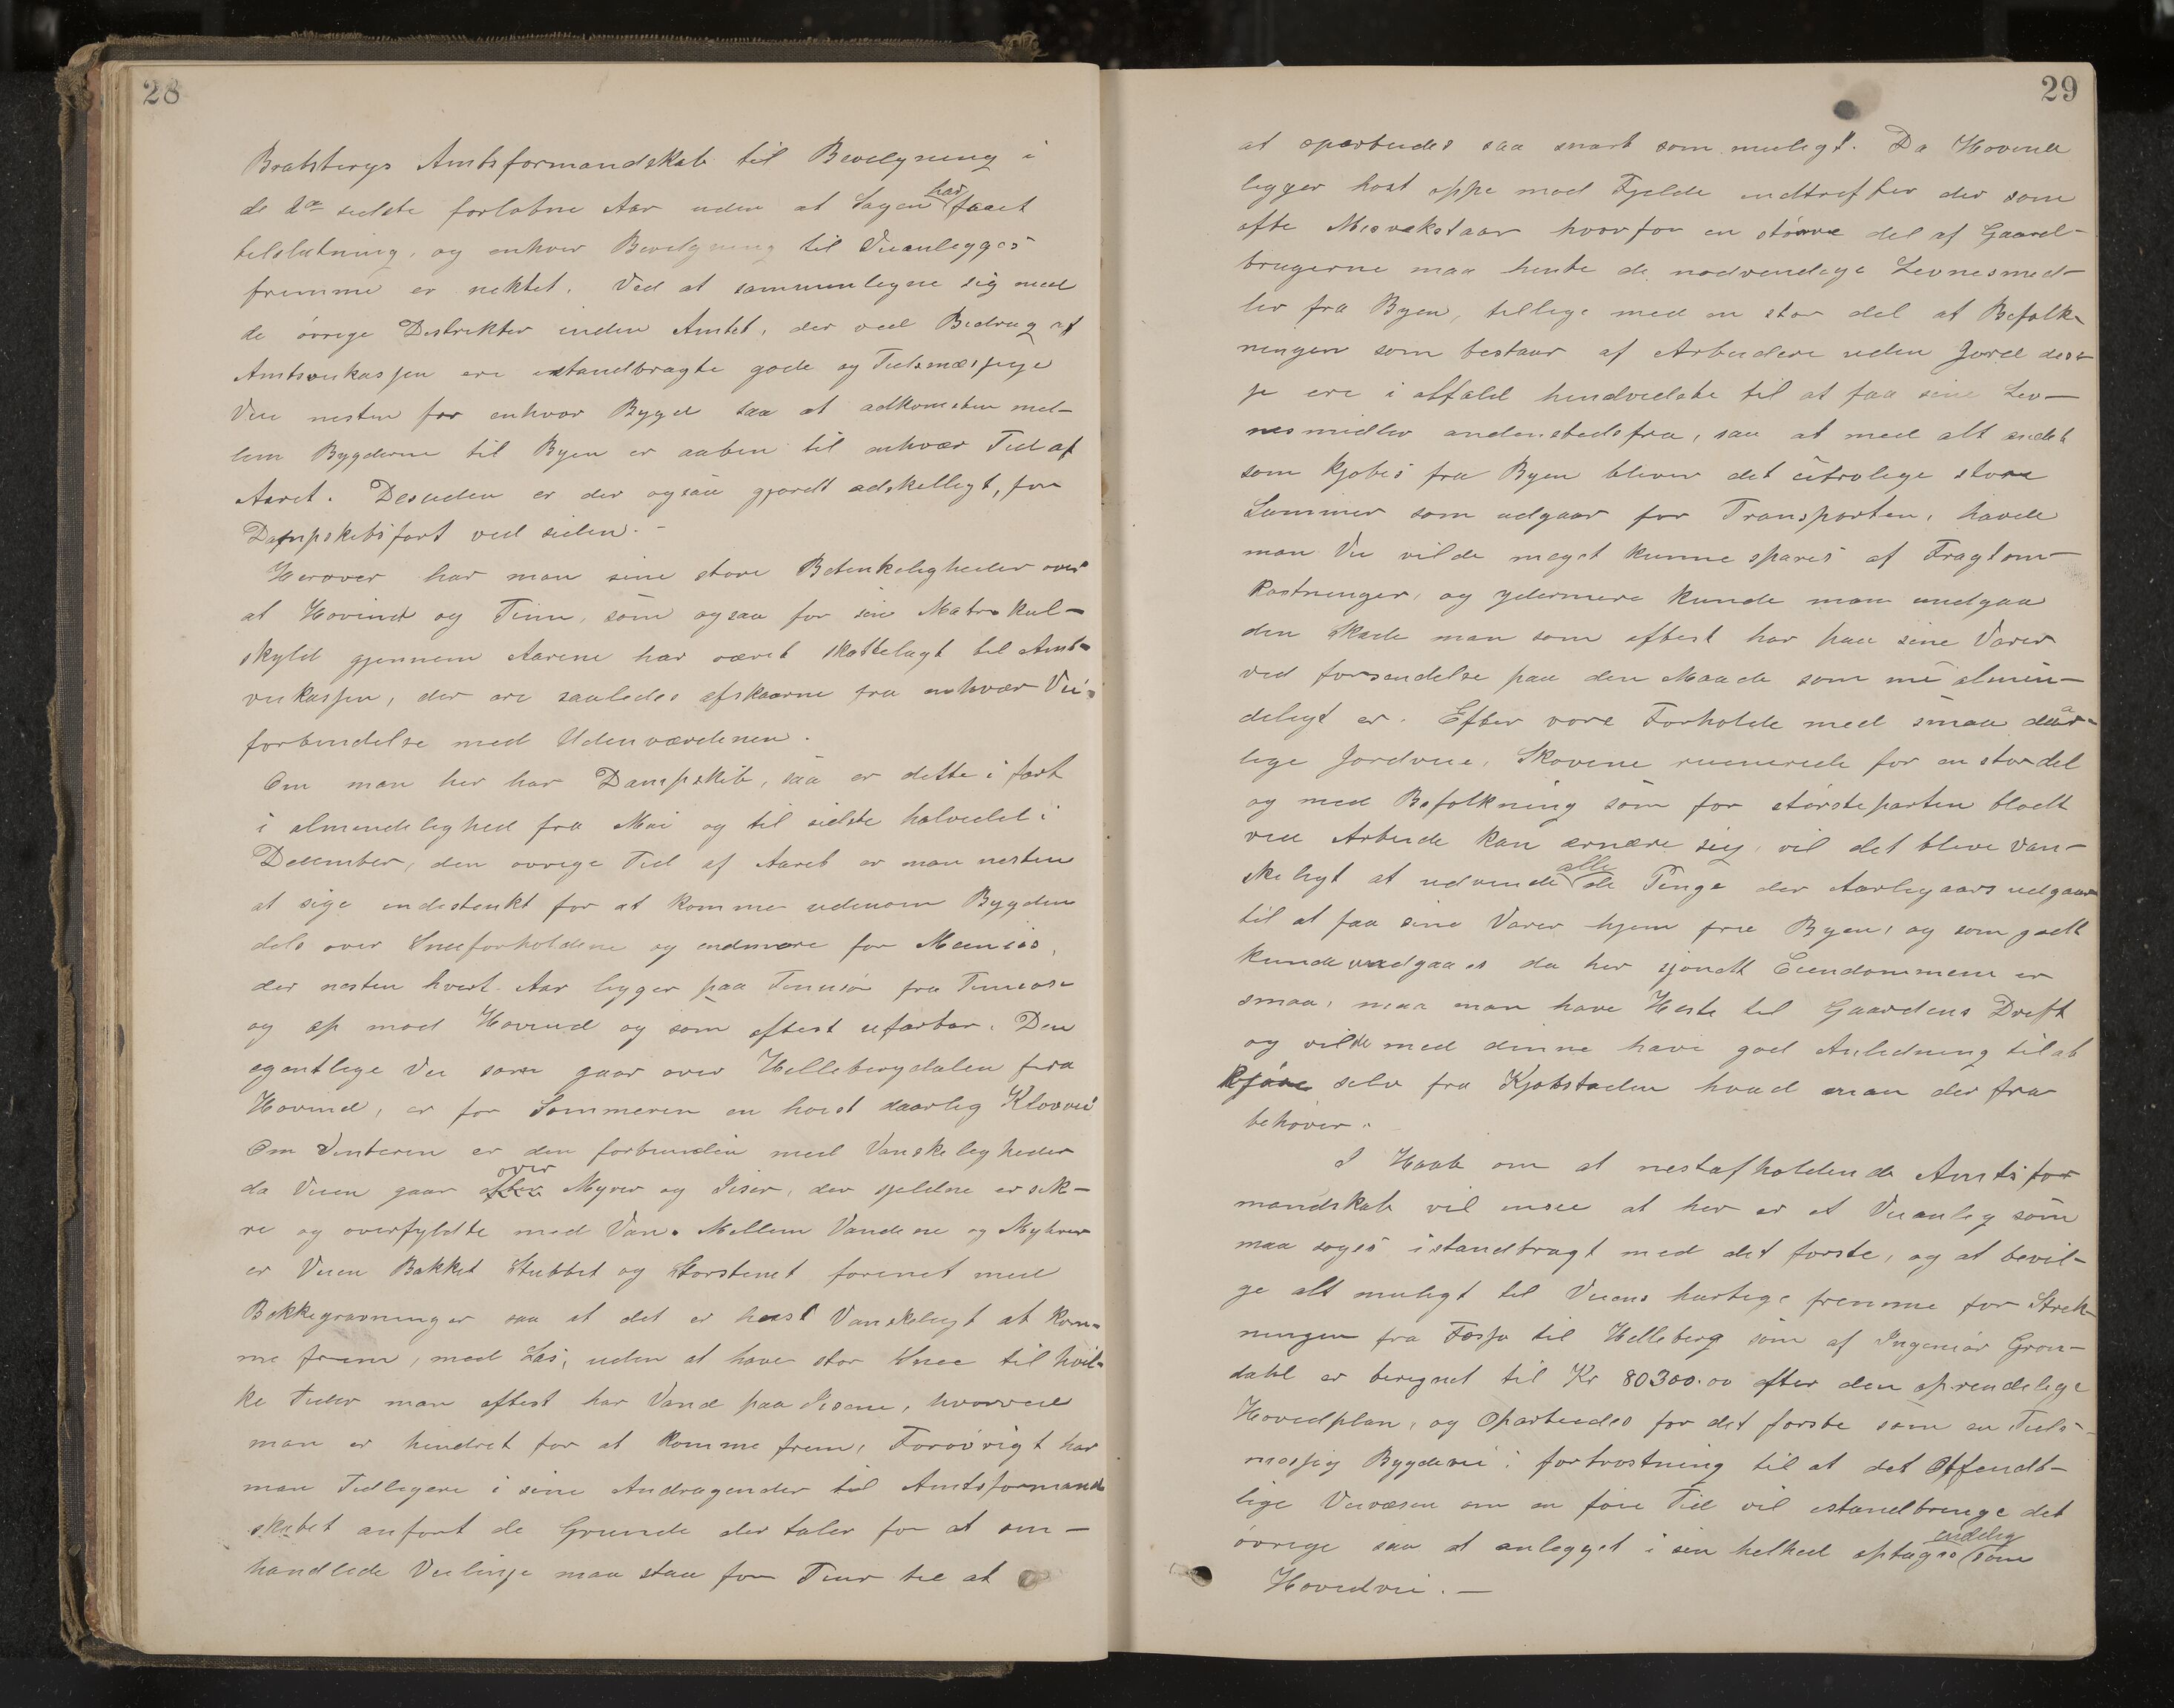 28
Bratsbergs Amtsformandskab til Bevilgning i
de to sidste forløbne Aar uden at Sagen har faaet
tilslutning, og enhver Bevilgning til Veianlegges
fremme er nektet. Ved at sammenlegne sig med
de övrige Distrikter inden Amtet, der ved Bidrag af
Amtsveikassen ere istandbragte gode og Tidsmæssige
Veie nesten for enhver Bygd saa at adkomsten mel-
lem Bygderne til Byen er aaben til enhver Tid af
Aaret. Desuden er der ogsaa gjordt adskelligt, for
Dampskibsfart ved siden. -
Herover har man sine store Betenkeligheder over
at Hovind og Tinn, som ogsaa for sin Matrikul-
skyld gjennem Aarene har været skattelagt til Amt-
veikassen, der ere saaledes afskaarne fra enhver Vei-
forbindelse med Udenværdenen.
Om man her har Dampskib, saa er dette i fart
i almindelighed fra Mai og til sidste halvdel i
December, den øvrige Tid af Aaret er man nesten
at sige indestenkt for at komme udenom Bygden
dels over Sneeforholdene og endmere for Meniis,
der nesten hvert Aar ligger paa Tinnsø fra Tinnoset
og op mod Hovind og som oftest ufarbar. Den
egentlige Vei som gaar over Hellebergdalen fra
Hovind, er for Sommeren en høist daarlig Kløvvei
Om Vinteren er den forbunden med Vanskeligheder
da Veien gaar efter over Myrer og Iiser, der sjeldne er sik-
re og overfyldte med Van. Mellem Vandene og Myhrer
er Veien Bakket Stubbet og Storstenet forenet med
Bekkegravninger saa at det er høist Vanskeligt at kom-
me frem, med Las, uden at have stor Snee til hvil-
ke Tider man oftest har Vand paa Isene, hvorved
man er hindret for at komme frem, Forövrigt har
man Tidligere i sine Andragender til Amtsformand
skabet anført de Grunde der taler for at om-
handlede Veilinje maa staa for Tur til at
29
at oparbeides saa snart som muligt. Da Hovind
ligger høit oppe mod Fjelde indtreffer der som
ofte Misvekstaar hvorfor en större del af Gaard-
brugerne maa hente de nødvendige Levnesmid-
ler fra Byen, tillige med en stor del at Befolk-
ningen som bestaar af Arbeidere uden Jord dis-
se ere i alfald henvidste til at faa sine Lev-
nesmidler andenstedsfra, saa at med alt andet
som kjøbes fra Byen bliver det utrolige store
Summer som udgaar for Transporten, havde
man Vei vilde meget kunne spares af Fragtom-
kostninger, og ydermere kunde man undgaa
den Skade man som oftest har paa sine Varer
ved forsendelse paa den Maade som nu almin-
deligt er. Efter vore Forholde med smaa daar-
lige Jordveie, Skovene ruinerede for en stor del
og med Befolkning som for störsteparten blodt
ved Arbeide kan ernære sig, vil det blive van-
skeligt at udvende alle de Penge der Aarligaars udgaar
til at faa sine Varer hjem fra Byen, og som godt
kunde undgaaes da her sjøndt Eiendommene er
smaa, maa man have Heste til Gaardens Drift
og vilde med dinne have god Anledning til at
kjöre selv fra Kjøbstaden hvad man der fra
behøver.
I Haab om at nestafholdende Amtsfor
mandskab vil insee at her er et Veianleg som
maa søges istandbragt med det første, og at bevil-
ge alt muligt til Veiens hurtige fremme for Strek-
ningen fra Fosso til Helleberg som af Ingeniør Grøn-
dahl er beregnet til Kr 80300.00 efter den oprendelige
Hovedplan, og Oparbeides for det første som en Tids-
messig Bygdevei i fortrøstning til at det Offendt-
lige Veivæsen om en föie Tid vil istandbringe det
övrige saa at anlegget i sin helhed optages endelig som
Hovedvei. -